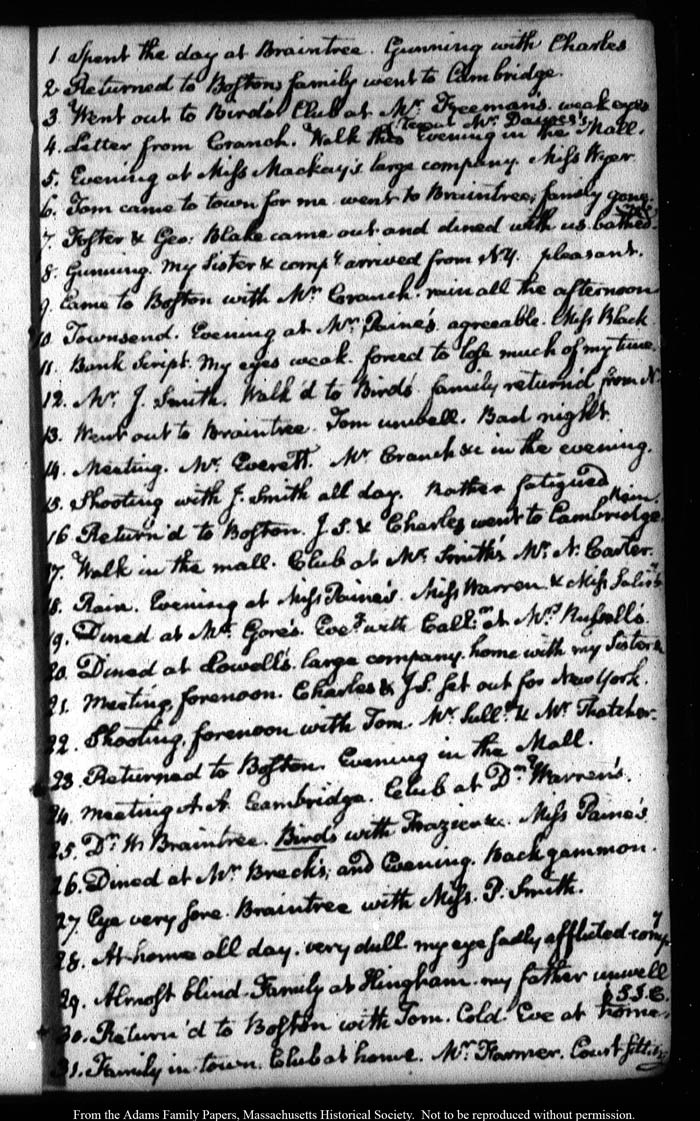 1. Spent the day at Braintree. Gunning with Charles
2. Returned to Boston; family went to Cambridge.
3. Went out to Bird's. Club at Mr. Freeman's. weak eyes
Tea at Mr. Dawes's
4. Letter from Cranch. Walk this Evening in the Mall.
5. Evening at Miss Mackay's large company. Miss Wyer
6. Tom came to town for me. went to Braintree; family gone.
7. Foster & Geo: Blake came out and dined with us. bathed.
8. Gunning. My Sister & compy. arrived from N.Y. pleasant.
9. Came to Boston with Mr. Cranch. rain all the afternoon
10. Townsend. Evening at Mr. Paine's. agreeable. Miss Black
11. Bank Script. My eyes weak. forced to lose much of my time.
12. Mr. J. Smith. Walk'd to Bird's. family return'd from N.
13. Went out to Braintree. Tom unwell. Bad night.
14. Meeting. Mr. Everett. Mr Cranch &c in the evening.
15. Shooting with J. Smith all day. Rather fatigued
Rain.
16 Return'd to Boston. J.S. & Charles went to Cambridge.
17. Walk in the mall. Club at Mr. Smith's Mr. N. Carter.
18. Rain. Evening at Miss Paine's. Miss Warren. & Miss
19. Dined at Mr. Gore's. Eveg. with Call: at Mrs. Russell's.
20. Dined at Lowell's. large company. home with my Sister
21. Meeting, forenoon. Charles & J.S. set out for New York.
22. Shooting, forenoon with Tom. Mr. Sull: & Mr Thatcher.
23. Returned to Boston. Evening in the Mall.
24. Meeting A.A. Cambridge. Club at Dr. Warren's.
25. Dr. W. Braintree. Birds with Frazier &c. Miss Paine's
26. Dined at Mr. Breck's; and Evening. Back gammon.
27. Eye very sore. Braintree with Miss. P. Smith.
28. At home all day. very dull my eye sadly afflicted. compy
29. Almost blind. Family at Hingham. my father unwell
30. Return'd to Boston with Tom. Cold. Eve at home.
31. Family in town. Club at home. Mr. Farmer. Court sitting
From the Adams Family Papers, Massachusetts Historical Society. Not to be reproduced without permission.